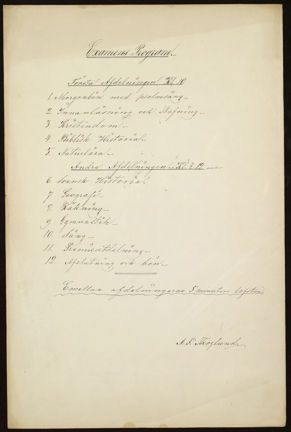 Examens Program.
Första Afdelningen Kl. 10
1. Morgonbön med psalmsång.
2 Innanläsning och Stafning.
3 Kristendom.
4 Biblisk Historia.
5 Naturlära.
Andra Afdelningen: Kl. 12
6 Svensk Historia.
7 Geografi.
8 Räkning.
9 Gymnastik.
10. Sång.
11. Premieutdelning.
12. Afslutning och bön.
Emellan afdelningarna 5 minuters